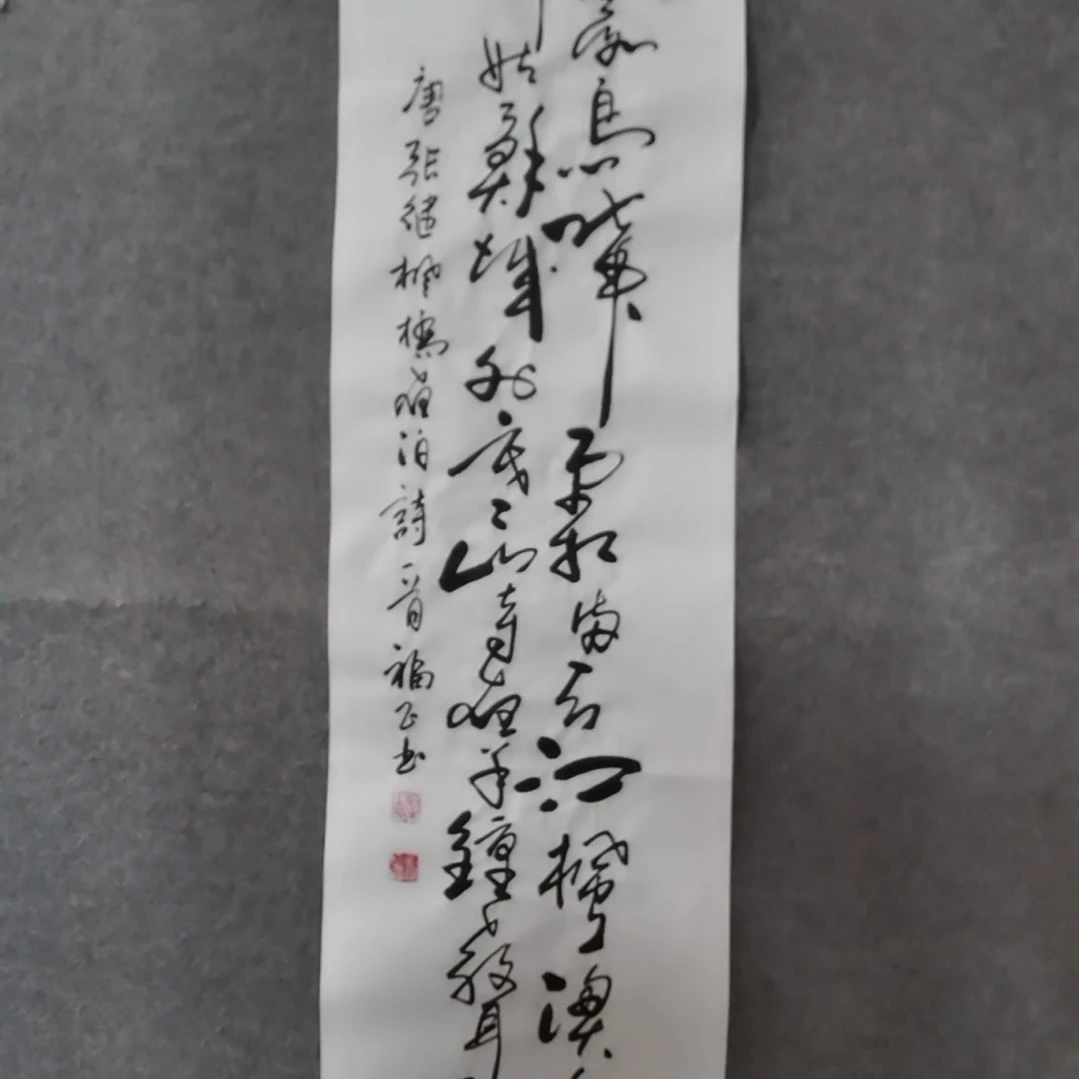 落烏啼霜滿天江楓漁
姑蘇城外寒山寺夜半鐘聲
唐張繼楓橋夜泊詩 福正书